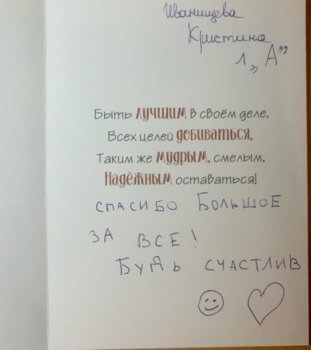 Иванищева
Кристина
1 „А”
Быть лучшим в своём деле,
Всех целей добиваться,
Таким же мудрым, смелым,
Надёжным оставаться!
СПАСИБО БОЛЬШОЕ
ЗА ВСЕ!
БУДЬ СЧАСТЛИВ